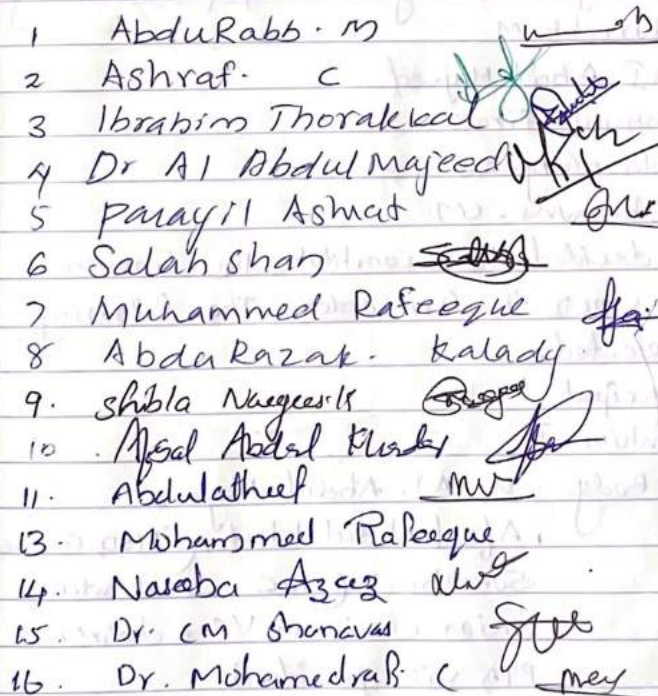 1 AbduRabb. M
2 Ashraf. C
3 Ibrahim Thorakkal
4 Dr Al Abdul Majeed
5 Parayil Ashraf
6 Salah shah
7 Muhammed Rafeeque
8 Abdu Razak. Kalady
9. Shibla Nargees. K
10. Afsal Abdul
11. Abdulatheef
13. Mohammed Rafeeque
14. Naseeba Azeez
15. Dr. CM Shanavas
16. Dr. Mohamedrafi C